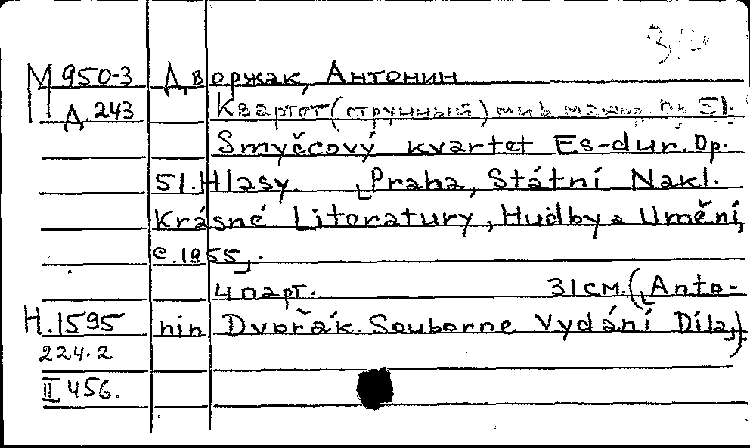 М 950-3 Дворжак, Антонин
Д. 243 Квартет (струнный) ми b мажор.
Smyčcový kvartet Es-dur. Op.
51. Hlasy. Praha, Státní Nakl.
Krásné Literatury, Hudby a Umění,
c. 1955.
4 парт. 31 см. (Anto-
Н. 1595 nin Dvořák. Souborne Vydání Díla,)
224.2
II 456.